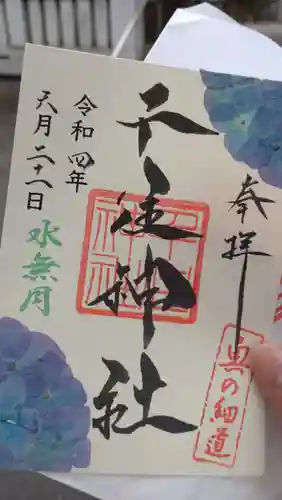 奉拝
奥の細道
千住神社
千住
神社
令和四年
六月二十一日
水無月